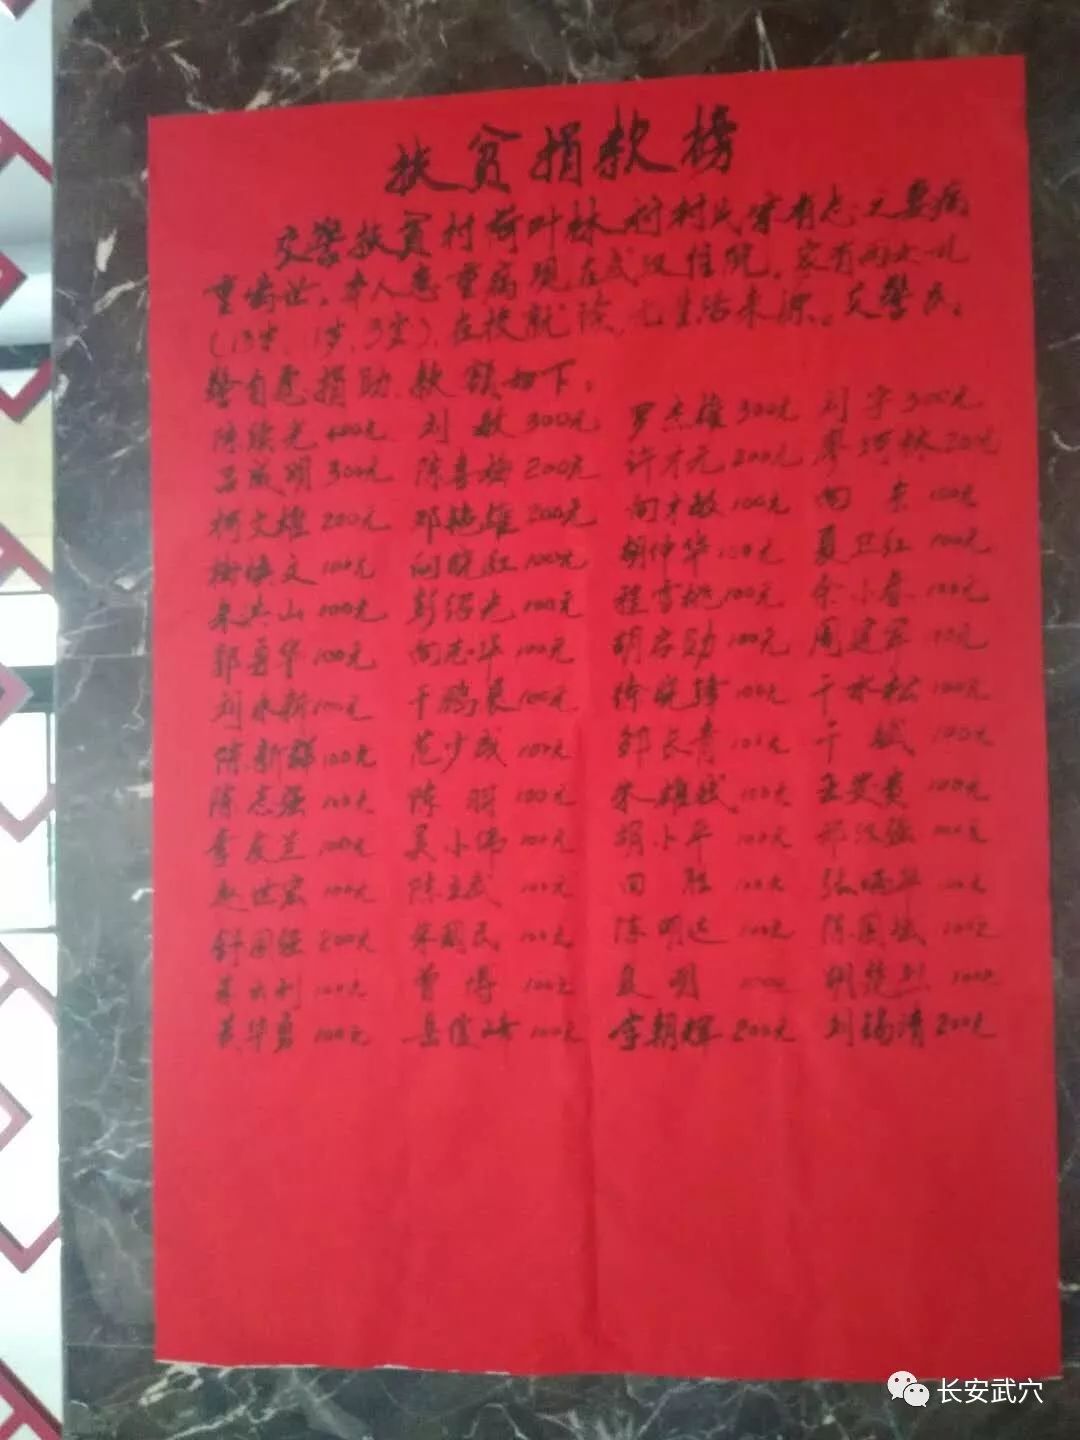 扶贫捐款榜
交警扶贫村荷叶林村村民 有志之妻病
重离世，本人患重病现在武汉住院，家有两女一儿
(13岁、1岁、3岁)，在校就读，无生活来源。交警民、
警自愿捐助，款额如下：
陈续光 400元 刘敏 300元 罗杰雄 300元 刘宇 300元
吕成明 300元 陈喜梅 200元 许才元 200元 廖河林 200元
柯文雄 200元 邓艳雄 200元 向才敏 100元 向东 100元
徐焕文 100元 向晓红 100元 胡仲华 100元 夏卫红 100元
朱共山 100元 彭绍光 100元 程雪桃 100元 余小春 100元
郭勇华 100元 向志华 100元 胡启勋 100元 周建军 100元
刘永新 100元 干鹏晨 100元 徐晓锋 100元 干水松 100元
陈新群 100元 范少成 100元 邹长青 100元 干斌 100元
陈志强 100元 陈羽 100元 朱雄斌 100元 100元
李友兰 100元 吴小伟 100元 胡小平 100元 郑汉强 100元
赵世宏 100元 陈立武 100元 田胜 100元 张 华 100元
舒国强 200元 朱国民 100元 陈明达 100元 陈国斌 100元
利 100元 曾博 100元 夏明 100元 胡楚烈 100元
黄华勇 100元 岳俊峰 100元 李朝辉 200元 刘锡清 200元
长安武穴